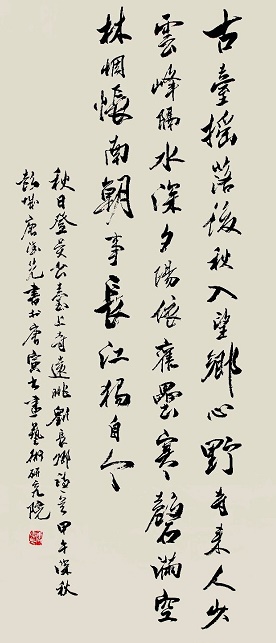 古臺搖落後秋入望鄉心野寺来人少
雲峰隔水深夕陽依舊壘寒磬滿空
林惆悵南朝事長江獨自今
秋日登吳公臺上寺遠眺劉長卿詩甲午深秋
彭城唐書於唐寅書畫藝術研究院